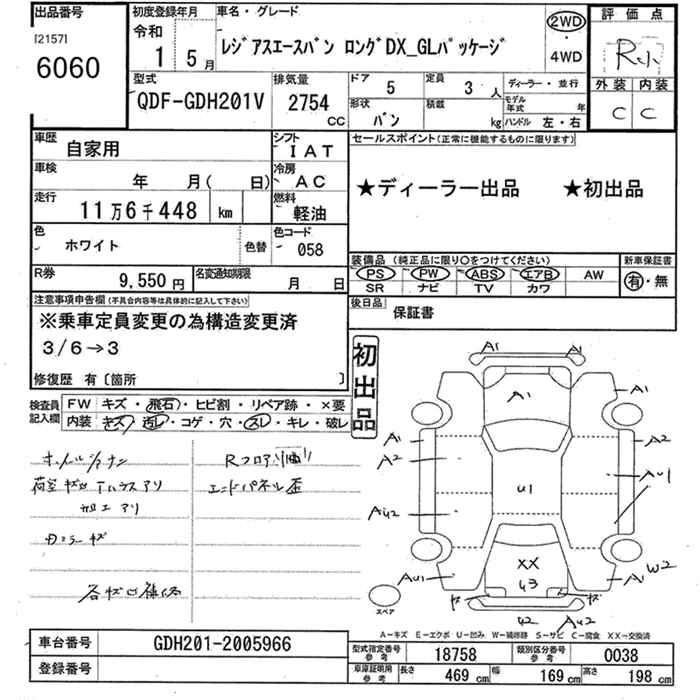 出品番号
[2157]
6060
初度登録年月
令和
1 5 月
車名・グレード
レジアスエースバン ロングDX_GLパッケージ
2WD
・
4WD
評価点
外装 内装
C C
型式
QDF-GDH201V
排気量
2754
CC
ドア
5
定員
3 人
ディーラー・並行
形状
バン
積載
kg
モデル年式 年
ハンドル 左・右
車歴
自家用
シフト
IAT
車検
年 月( 日)
冷房
AC
走行
11万6千448 km
燃料
軽油
色
ホワイト
色替
色コード
058
R券
9,550円
名変通知期限
月 日
セールスポイント(正常に機能するものに限ります)
★ディーラー出品 ★初出品
装備品 (純正品に限り○をつけてください)
PS PW ABS エアB AW
SR ナビ TV カワ
新車保証書
有・無
後日品
保証書
注意事項申告欄(不具合内容等は具体的に記入して下さい)
※乗車定員変更の為構造変更済
3/6→3
修復歴 有〔箇所 〕
初出品
検査員記入欄
FW キズ・飛石・ヒビ割・リペア跡・×要
内装 キズ・汚レ・コゲ・穴・スレ・キレ・破レ
エンドパネル歪
A1 A1
A1
A1
A1
A2
A2
AU1
U1
AU2
XX
U3
AU1
A1
W2
キズ キズ
U2 AU2
スペア
A-キズ E-エクボ U-凹ミ W-補修跡 S-サビ C-腐食 XX-交換済
車台番号
GDH201-2005966
登録番号
型式指定番号 参考
18758
類別区分番号 参考
0038
車庫証明用 参考
長さ 469 cm
幅 169 cm
高さ 198 cm